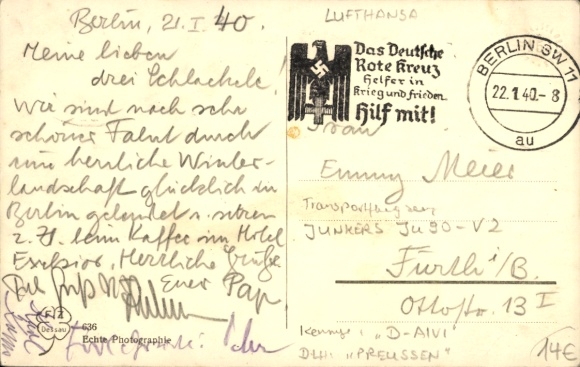 Berlin, 21.I.40.
Meine lieben
drei Schlackele!
Wir sind nach sehr
schöner Fahrt durch
eine herrliche Winter-
landschaft glücklich in
Berlin gelandet u. sitzen
z. Zt. beim Kaffee im Hotel
Excelsior. Herzliche Grüße
Euer Pap
Dessau
636
Echte Photographie
LUFTHANSA
Das Deutsche
Rote Kreuz
Helfer in
Krieg und Frieden
Hilf mit!
BERLIN SW 11
22.1.40.-8
au
Frau
Emmy Meier
Transportflugzeug
JUNKERS Ju 90-V2
Fürth i/B.
Ottostr. 13 I
Kennz.: "D-AIVI"
DLH: "PREUSSEN"
14€